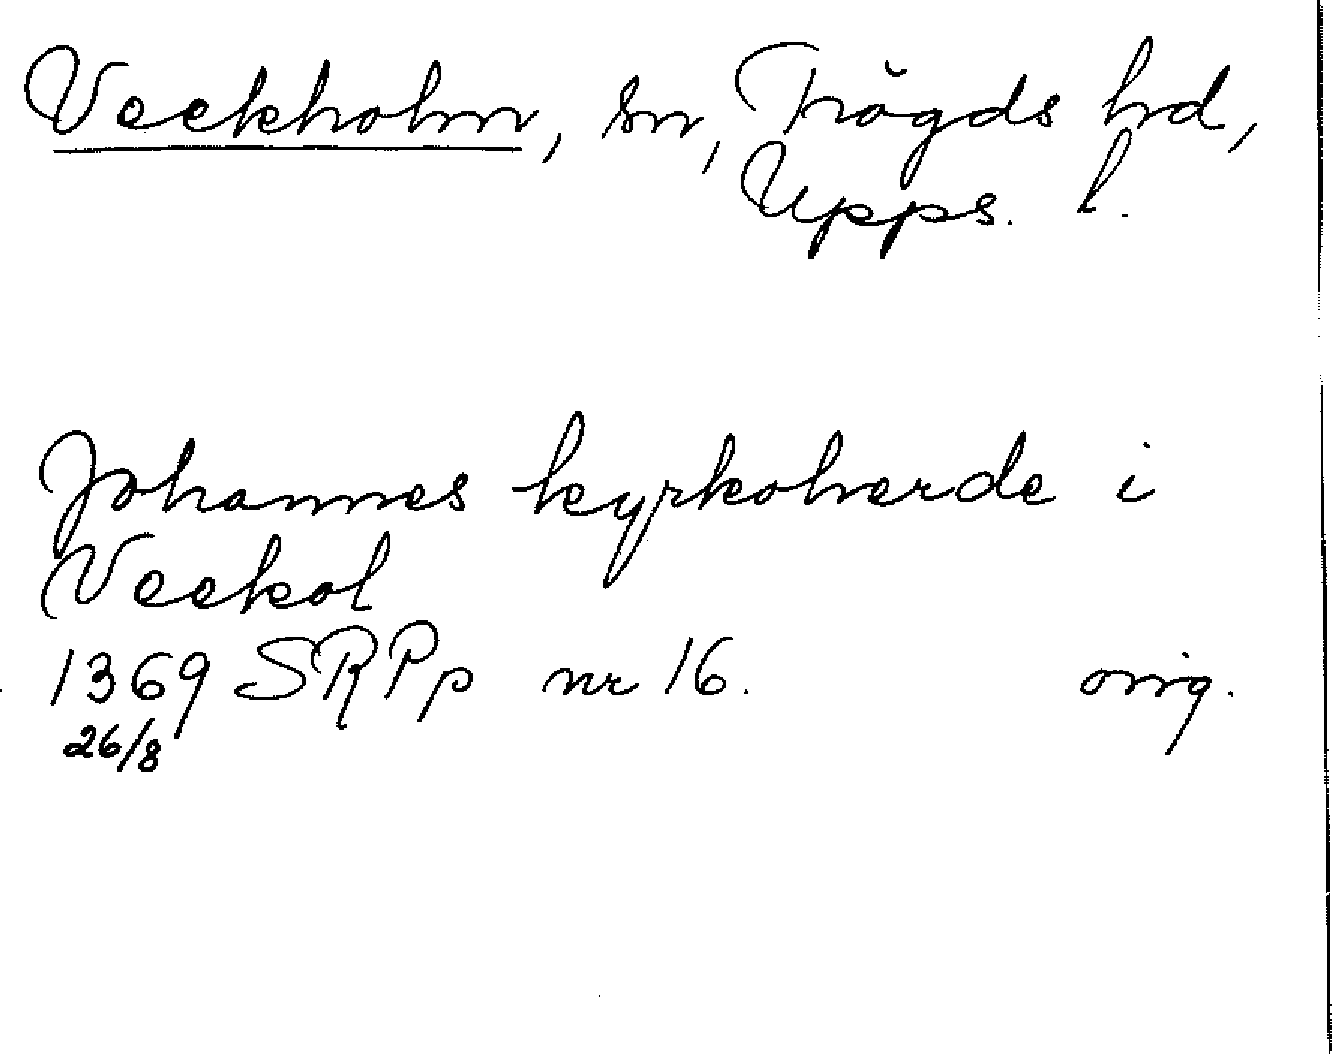 Veckholm, sn, Trögds hd,
Upps. l.
Johannes kyrkoherde i
Veekol
1369 SRPp nr 16. orig.
26/8